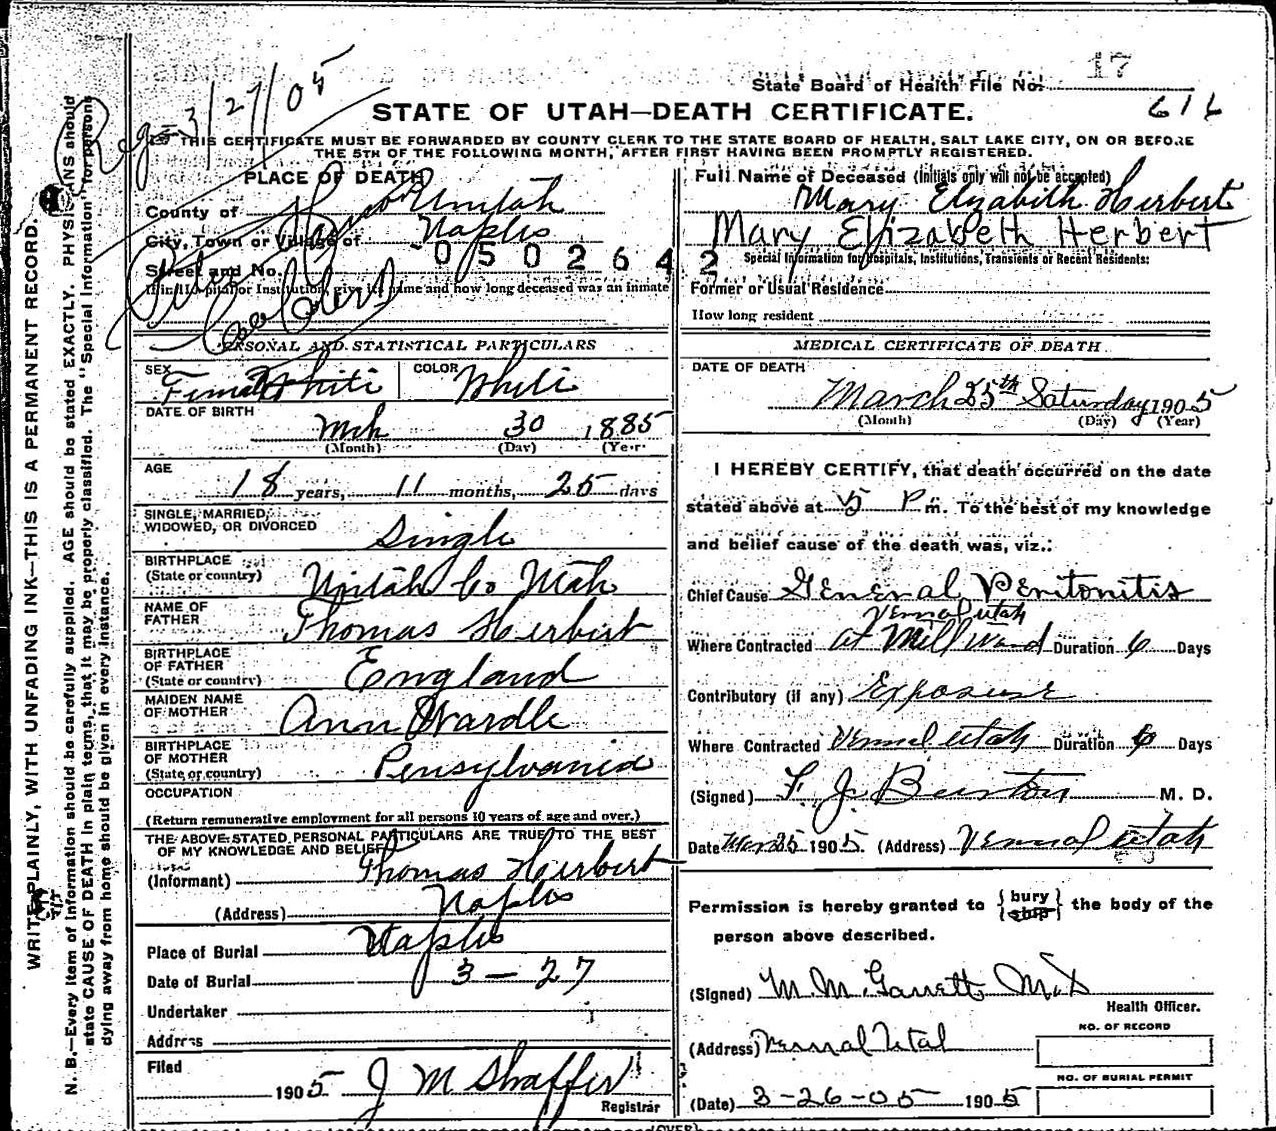 17
State Board of Health File No.
616
Reg 3/27/05
STATE OF UTAH—DEATH CERTIFICATE.
THIS CERTIFICATE MUST BE FORWARDED BY COUNTY CLERK TO THE STATE BOARD OF HEALTH, SALT LAKE CITY, ON OR BEFORE
THE 5TH OF THE FOLLOWING MONTH, AFTER FIRST HAVING BEEN PROMPTLY REGISTERED.
PLACE OF DEATH
County of Uintah
City, Town or Village of Naples
Street and No.
0502642
If in Hospital or Institution, give its name and how long deceased was an inmate
Full Name of Deceased (Initials only will not be accepted)
Mary Elizabith Herbert
Mary Elizabeth Herbert
Special Information for Hospitals, Institutions, Transients or Recent Residents:
Former or Usual Residence
How long resident
PERSONAL AND STATISTICAL PARTICULARS
SEX Female White COLOR White
DATE OF BIRTH
Mch 30 1885
(Month) (Day) (Year)
AGE
18 years, 11 months, 25 days
SINGLE, MARRIED,
WIDOWED, OR DIVORCED Single
BIRTHPLACE
(State or country) Unitah Co Utah
NAME OF
FATHER Thomas Herbert
BIRTHPLACE
OF FATHER
(State or country) England
MAIDEN NAME
OF MOTHER Ann Wardle
BIRTHPLACE
OF MOTHER
(State or country) Pensylvania
OCCUPATION
(Return remunerative employment for all persons 10 years of age and over.)
THE ABOVE STATED PERSONAL PARTICULARS ARE TRUE TO THE BEST
OF MY KNOWLEDGE AND BELIEF
(Informant) Thomas Herbert
(Address) Naples
Place of Burial Naples
Date of Burial 3-27
Undertaker
Address
Filed
1905 J M Shaffer
Registrar
MEDICAL CERTIFICATE OF DEATH
DATE OF DEATH
March 25th Saturday 1905
(Month) (Day) (Year)
I HEREBY CERTIFY, that death occurred on the date
stated above at 5 P m. To the best of my knowledge
and belief cause of the death was, viz.:
Chief Cause General Peritonitis
Vernal Utah
Where Contracted at Mill Ward Duration 6 Days
Contributory (if any) Exposure
Where Contracted Vernal Utah Duration 6 Days
(Signed) F. J. Burton M. D.
Date Mar 25 1905. (Address) Vernal Utah
Permission is hereby granted to {bury
{ship} the body of the
person above described.
(Signed) M. M. Garrett M.D
Health Officer.
(Address) Vernal Utah
NO. OF RECORD
NO. OF BURIAL PERMIT
(Date) 3-26-05 1905
(OVER)
WRITE PLAINLY, WITH UNFADING INK—THIS IS A PERMANENT RECORD.
N. B.—Every item of information should be carefully supplied. AGE should be stated EXACTLY. PHYSICIANS should
state CAUSE OF DEATH in plain terms, that it may be properly classified. The "Special Information" for persons
dying away from home should be given in every instance.